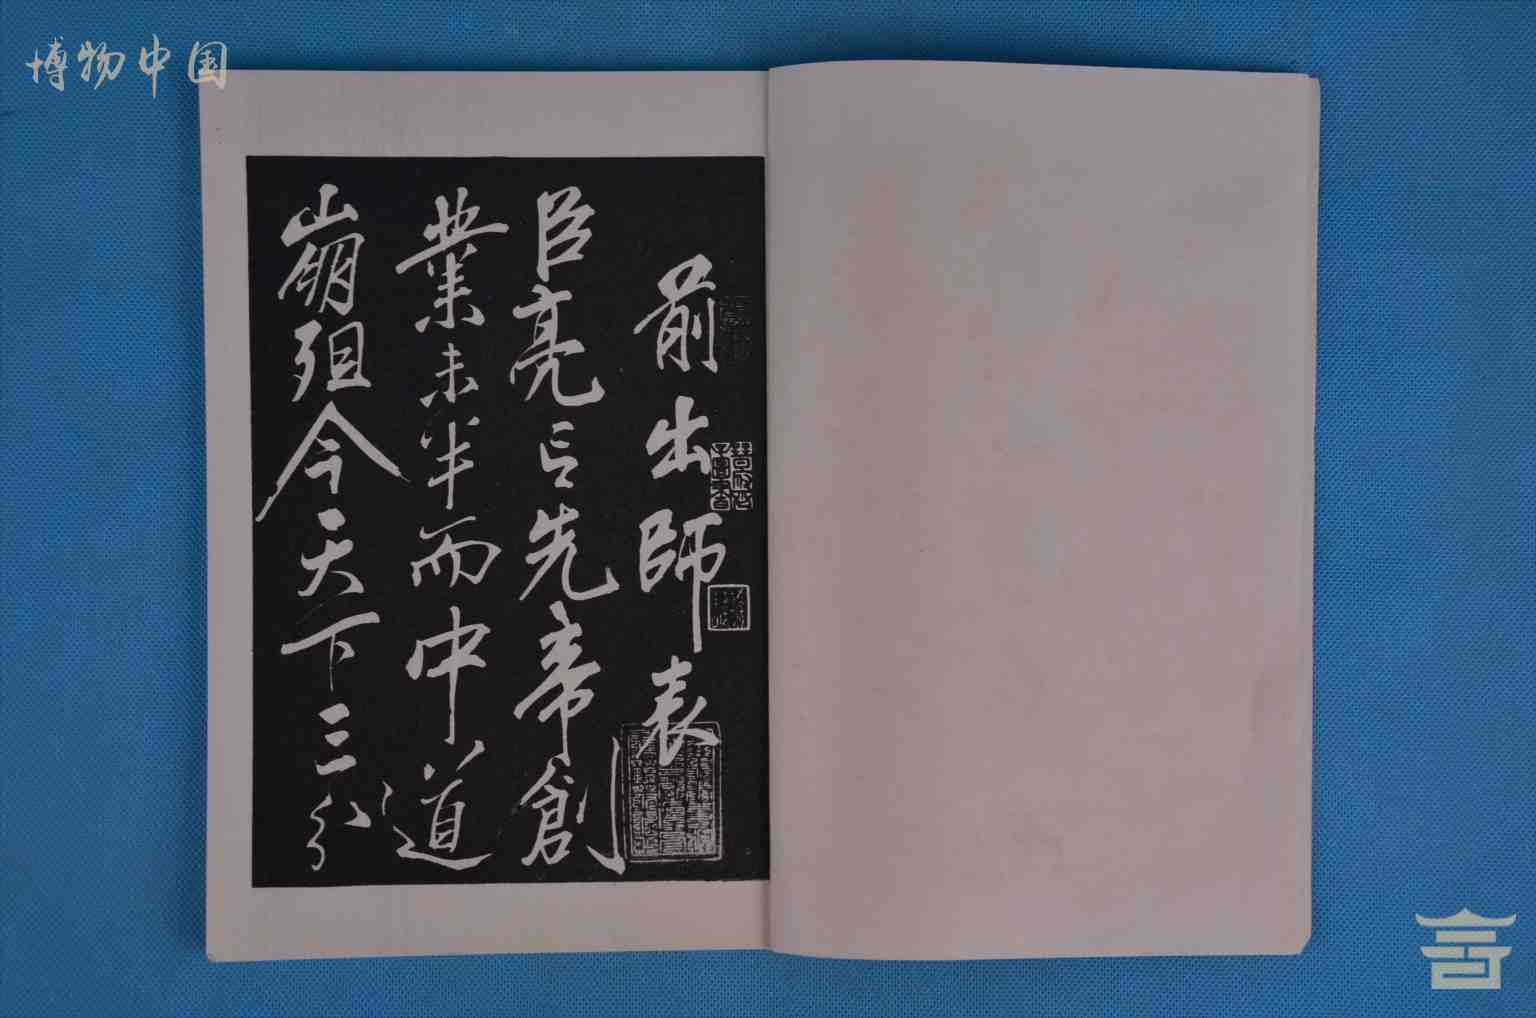 博物中国
前出師表
臣亮言先帝創
業未半而中道
崩殂今天下三分